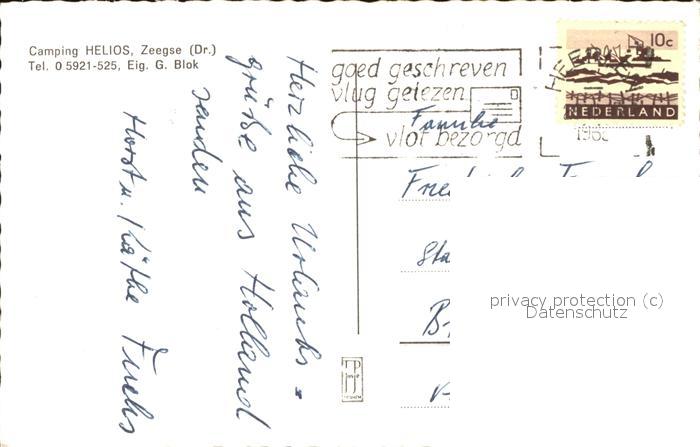 Camping HELIOS, Zeegse (Dr.)
Tel. 0 5921-525, Eig. G. Blok
Herzliche Urlaubs-
grüße aus Holland
senden
Horst u. Käthe Fuchs
goed geschreven
vlug gelezen
vlot bezorgd
10c
NEDERLAND
Familie
privacy protection (c)
Datenschutz